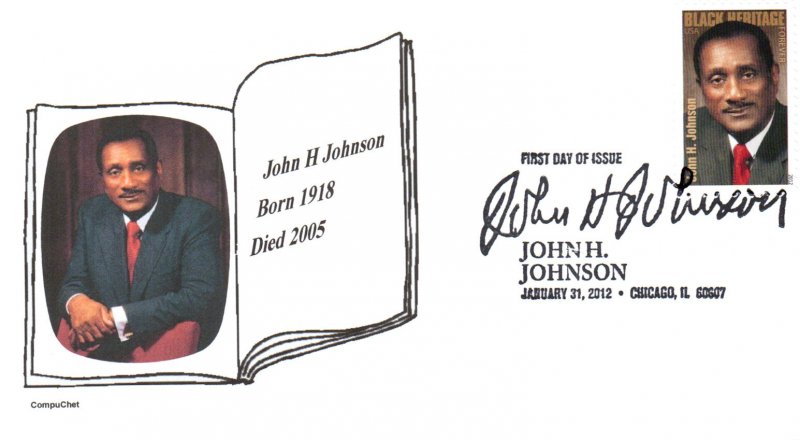 John H Johnson
Born 1918
Died 2005
CompuChet
BLACK HERITAGE
USA
FOREVER
John H. Johnson
FIRST DAY OF ISSUE
John H Johnson
JOHN H.
JOHNSON
JANUARY 31, 2012 • CHICAGO, IL 60607